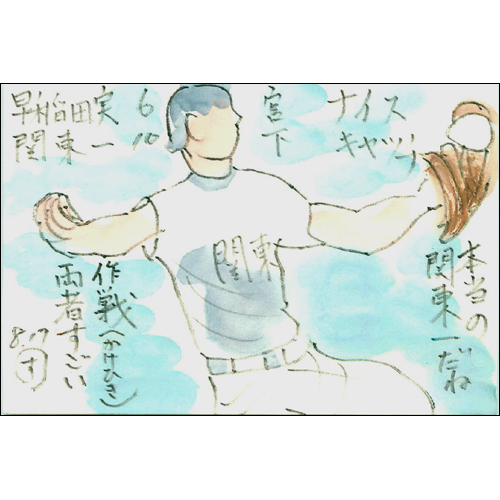 早稲田実 6
関東一 10
宮下
ナイス
キャッチ
関東
本当の
関東一だね
作戦(かけひき)
両者すごい
8.17
す